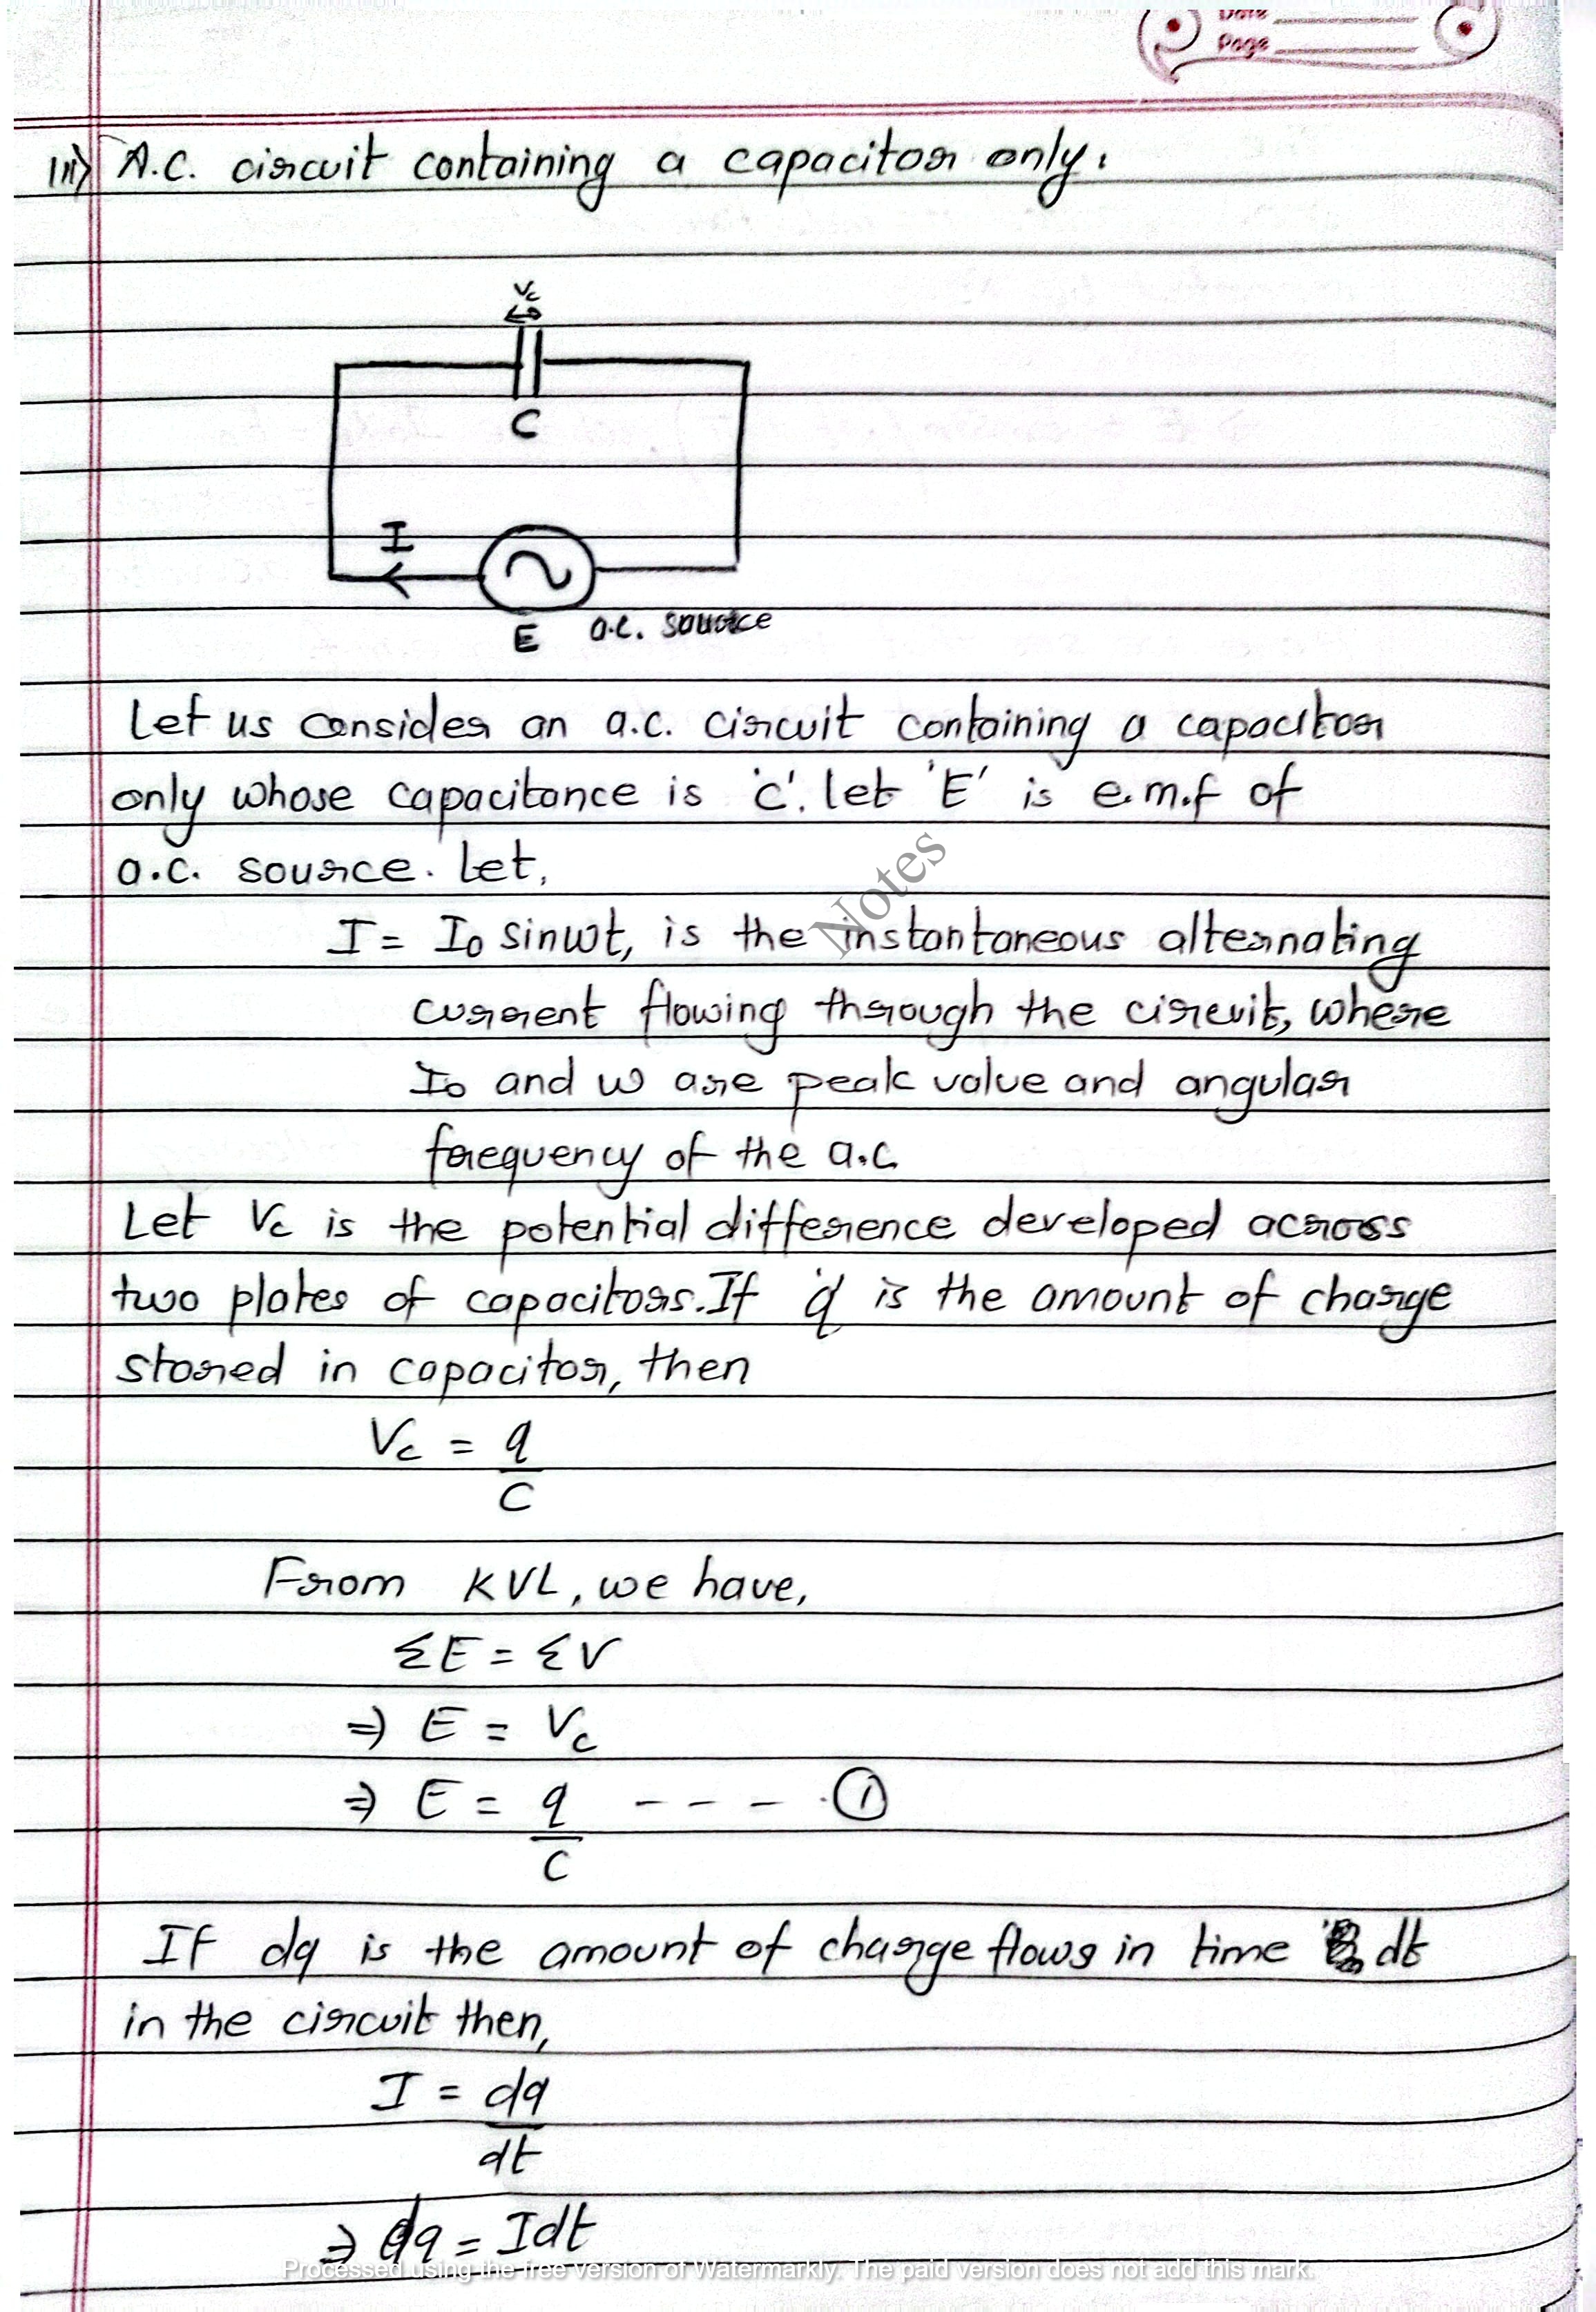 Date
Page
iii) A.C. circuit containing a capacitor only.
Vc
C
I
E a.c. source
Let us consider an a.c. circuit containing a capacitor
only whose capacitance is 'C'. let 'E' is e.m.f of
a.c. source. Let,
I = I₀ sinωt, is the instantaneous alternating
current flowing through the circuit, where
I₀ and ω are peak value and angular
frequency of the a.c.
Let Vc is the potential difference developed across
two plates of capacitors. If 'q' is the amount of charge
stored in capacitor, then
Vc = q/C
From KVL, we have,
ΣE = ΣV
⇒ E = Vc
⇒ E = q/C - - - - ①
If dq is the amount of charge flows in time dt
in the circuit then,
I = dq/dt
⇒ dq = Idt
Notes
Processed using the free version of Watermarkly. The paid version does not add this mark.